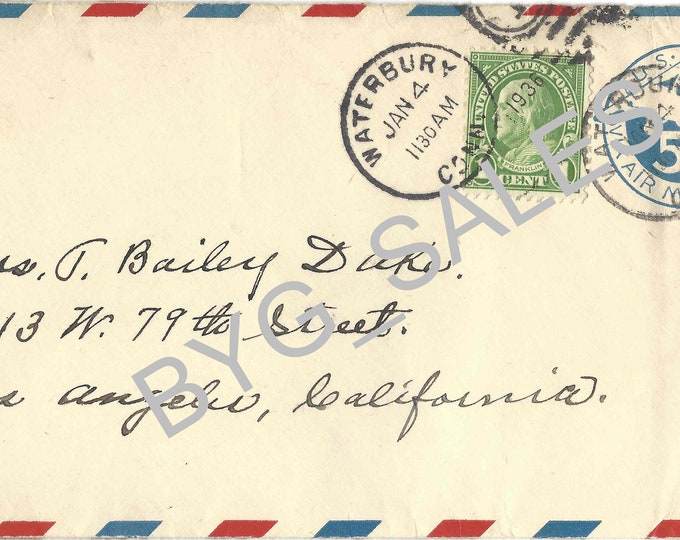 WATERBURY
JAN 4
1130 AM
1936
CONN.
UNITED STATES POSTAGE
FRANKLIN
1 CENT 1
U.S.
5
AIR M
s. T. Bailey Duke.
13 W. 79th Street.
s Angeles, California.
BYG_SALES